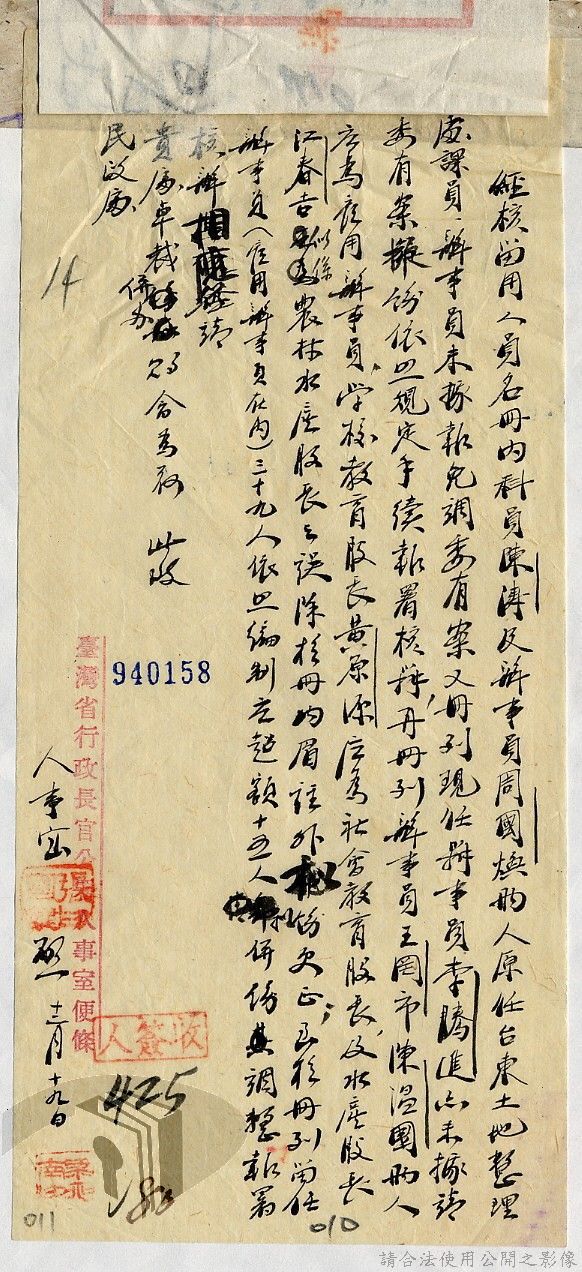 經核留用人員名冊內科員陳溥及辦事員周國煥兩人原任台東土地整理
處課員、辦事員未據報免調委有案又冊列現任辦事員李騰進亦未據請
委有案擬飭依照規定手續報署核辦，再冊列辦事員王岡市陳溫圍兩人
應為雇用辦事員，學校教育股長黃原源應為社會教育股長，及水產股長
江春吉似係農林水產股長之誤除於冊內眉註外擬飭更正；至於冊列留任
辦事員（雇用辦事員在內）三十九人依照編制应超額十五人併飭其調整報署
核辦相應簽請
貴處卓裁併辦見會為荷 此致
民政處
臺灣省行政長官公署人事室便條
940158
人事室 啟 十二月十九日
收簽人
425
14
011
010
請合法使用公開之影像